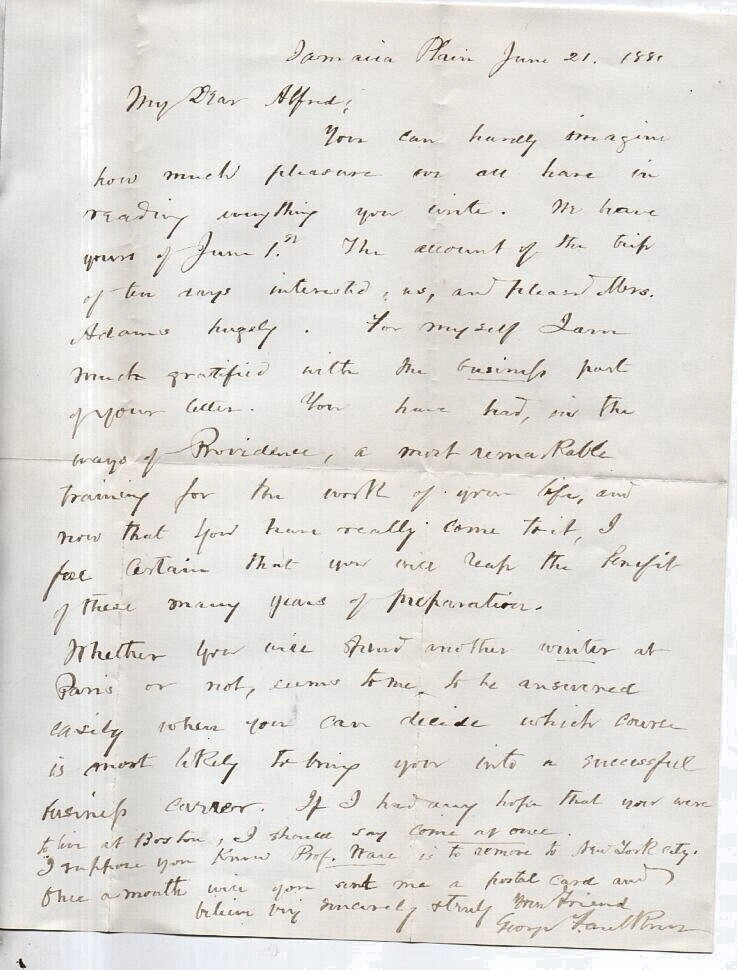 Jamaica Plain June 21. 1881
My Dear Alfred;
You can hardly imagine
how much pleasure we all have in
reading everything you write. We have
yours of June 1.st The account of the trip
of ten days interested, us, and pleased Mrs.
Adams hugely. For myself I am
much gratified with the business part
of your letter. You have had, in the
ways of Providence, a most remarkable
training for the work of your life, and
now that you have really come to it, I
feel certain that you will reap the benefit
of these many years of preparation.
Whether you will spend another winter at
Paris or not, seems to me, to be answered
easily when you can decide which course
is most likely to bring you into a successful
business career. If I had any hope that you were
to live at Boston, I should say come at once.
I suppose you know Prof. Ware is to remove to New York city.
Once a month will you send me a postal card and
believe very sincerely & truly Your Friend
George Faulkner